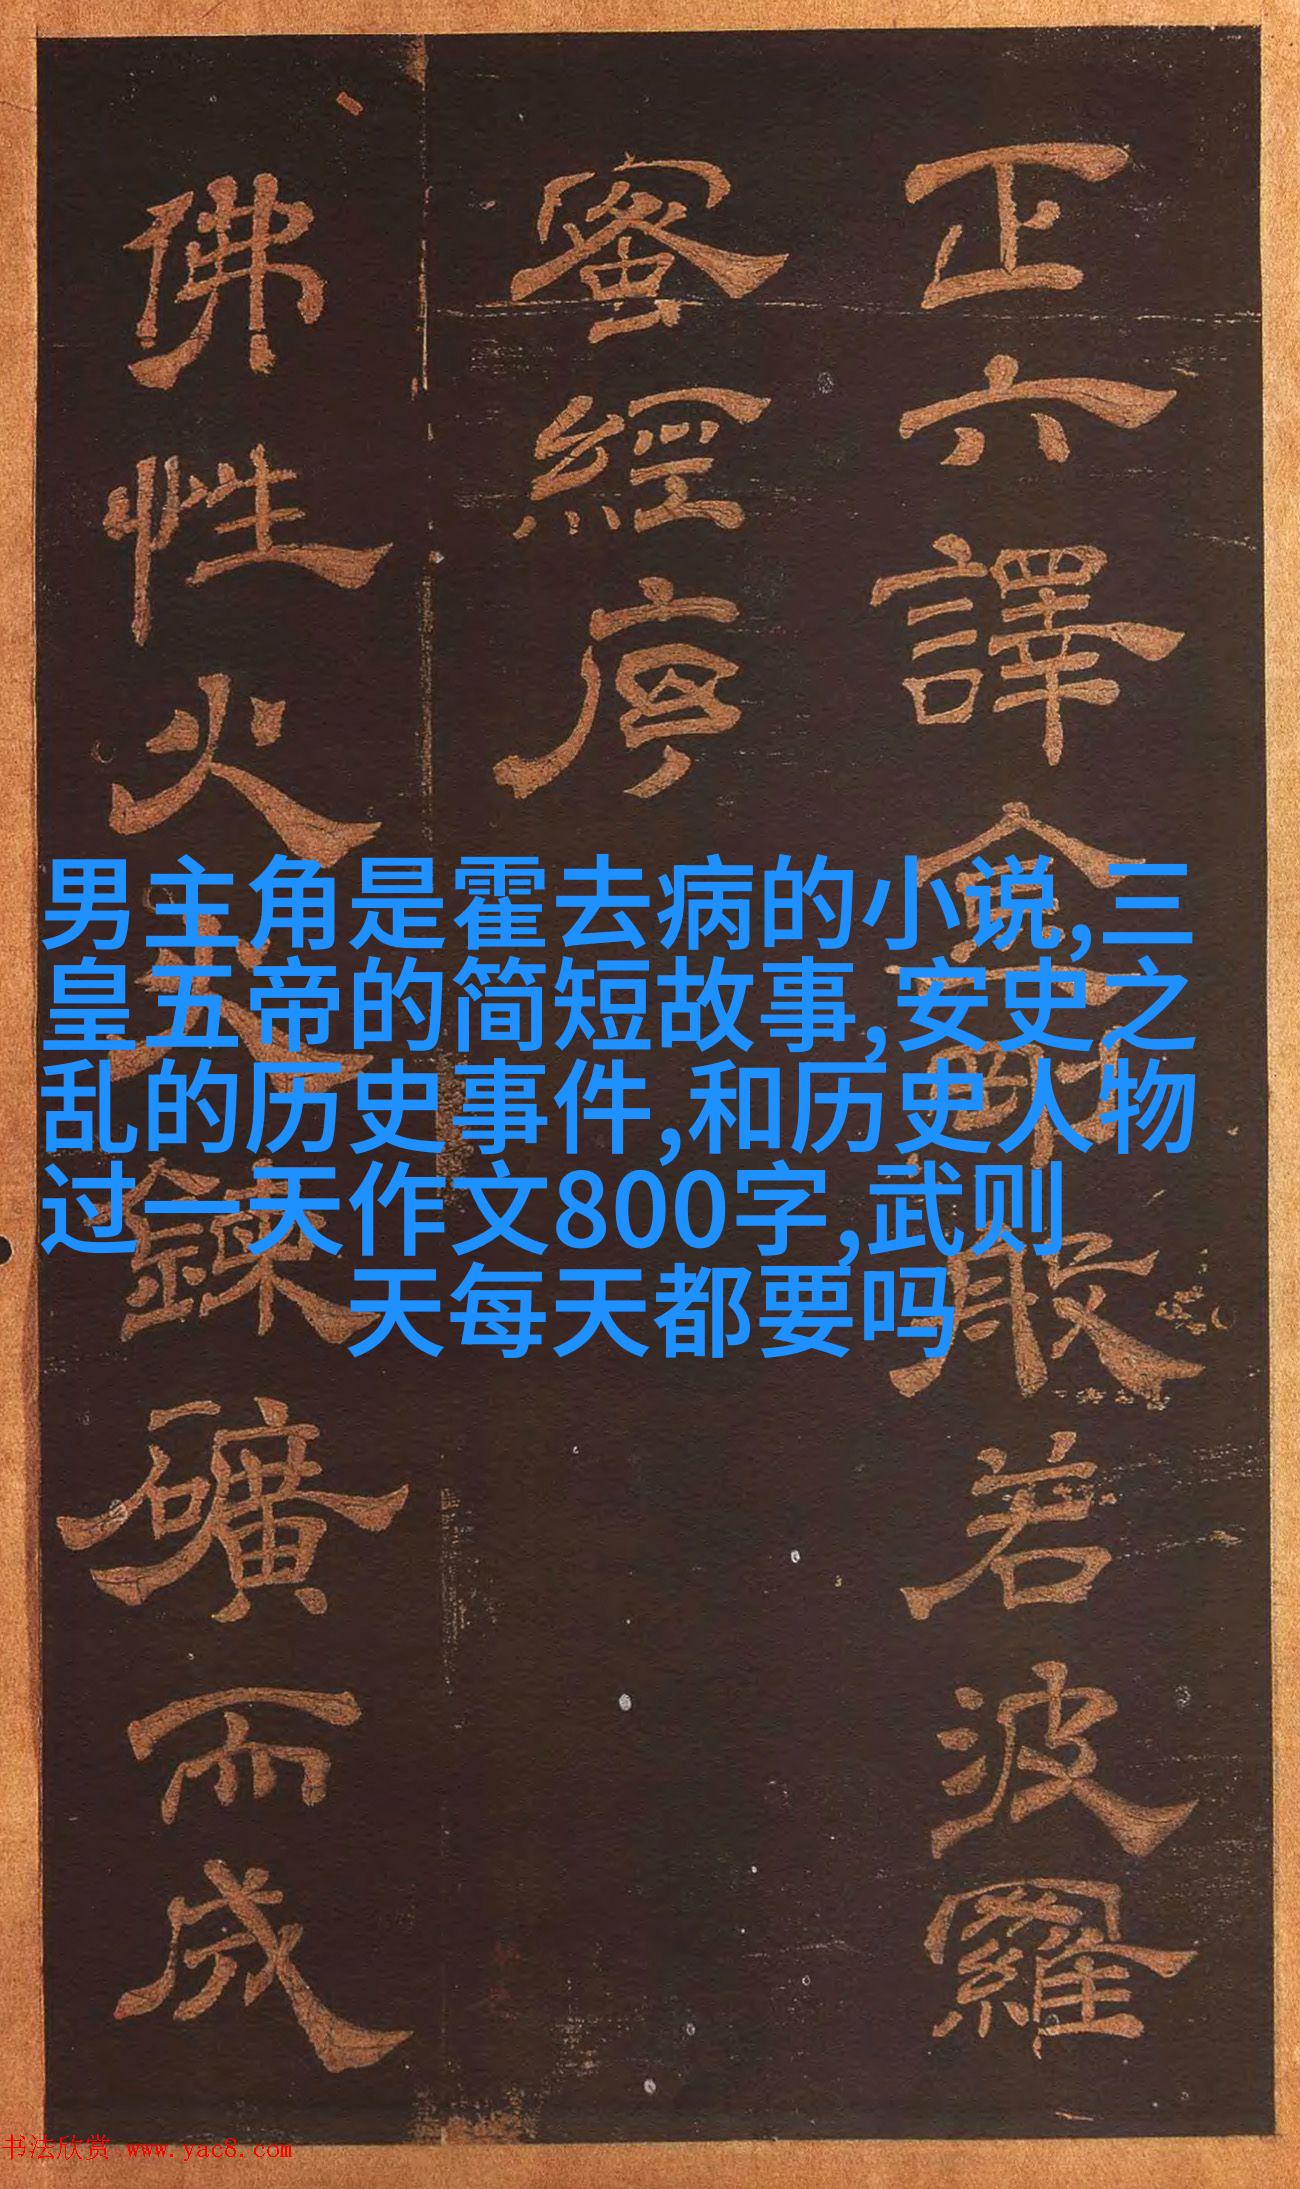 正六譯金剛般若波羅
蜜經序
佛性火
鍊礦而成
男主角是霍去病的小说,三
皇五帝的简短故事,安史之
乱的历史事件,和历史人物
过一天作文800字,武则
天每天都要吗
书法欣赏 www.yac8.com